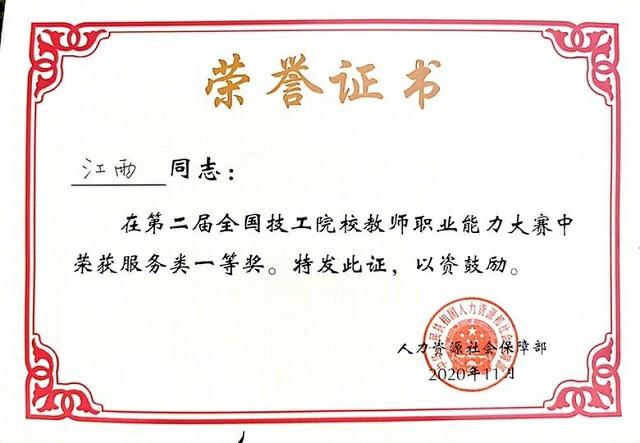 荣誉证书
江西 同志：
在第二届全国技工院校教师职业能力大赛中
荣获服务类一等奖。特发此证，以资鼓励。
中华人民共和国人力资源和社会保障部
人力资源社会保障部
2020年11月